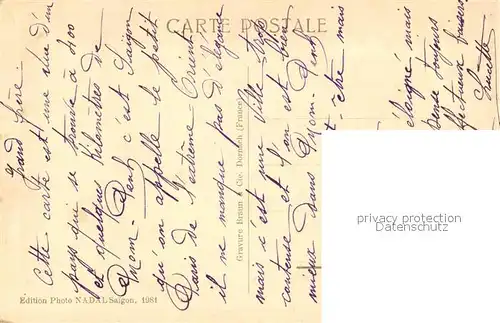 CARTE POSTALE
grand frère.
Cette carte est une vue d'un
pays qui se trouve à 400
et quelques kilomètres de
Mom-Penh, c'est Saïgon
qu'on appelle le petit
Paris de l'extrême Orient
il ne manque pas d'élégance
mais c'est une ville trop
et l'on est bien
mieux dans Mom-Penh
-être mais
éloigné mais
pense toujours
affectueux baisers
Gravure Braun & Cie. Dornach (France)
Edition Photo NADAL Saigon, 1981
privacy protection
Datenschutz